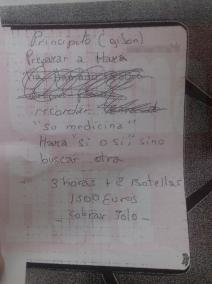 Principito (gibon)
Preparar a Hara
recordar
"su medicina"
Hara "si o si", sino
buscar otra
3 horas + 2 Botellas
1500 Euros
- Cobrar Solo -